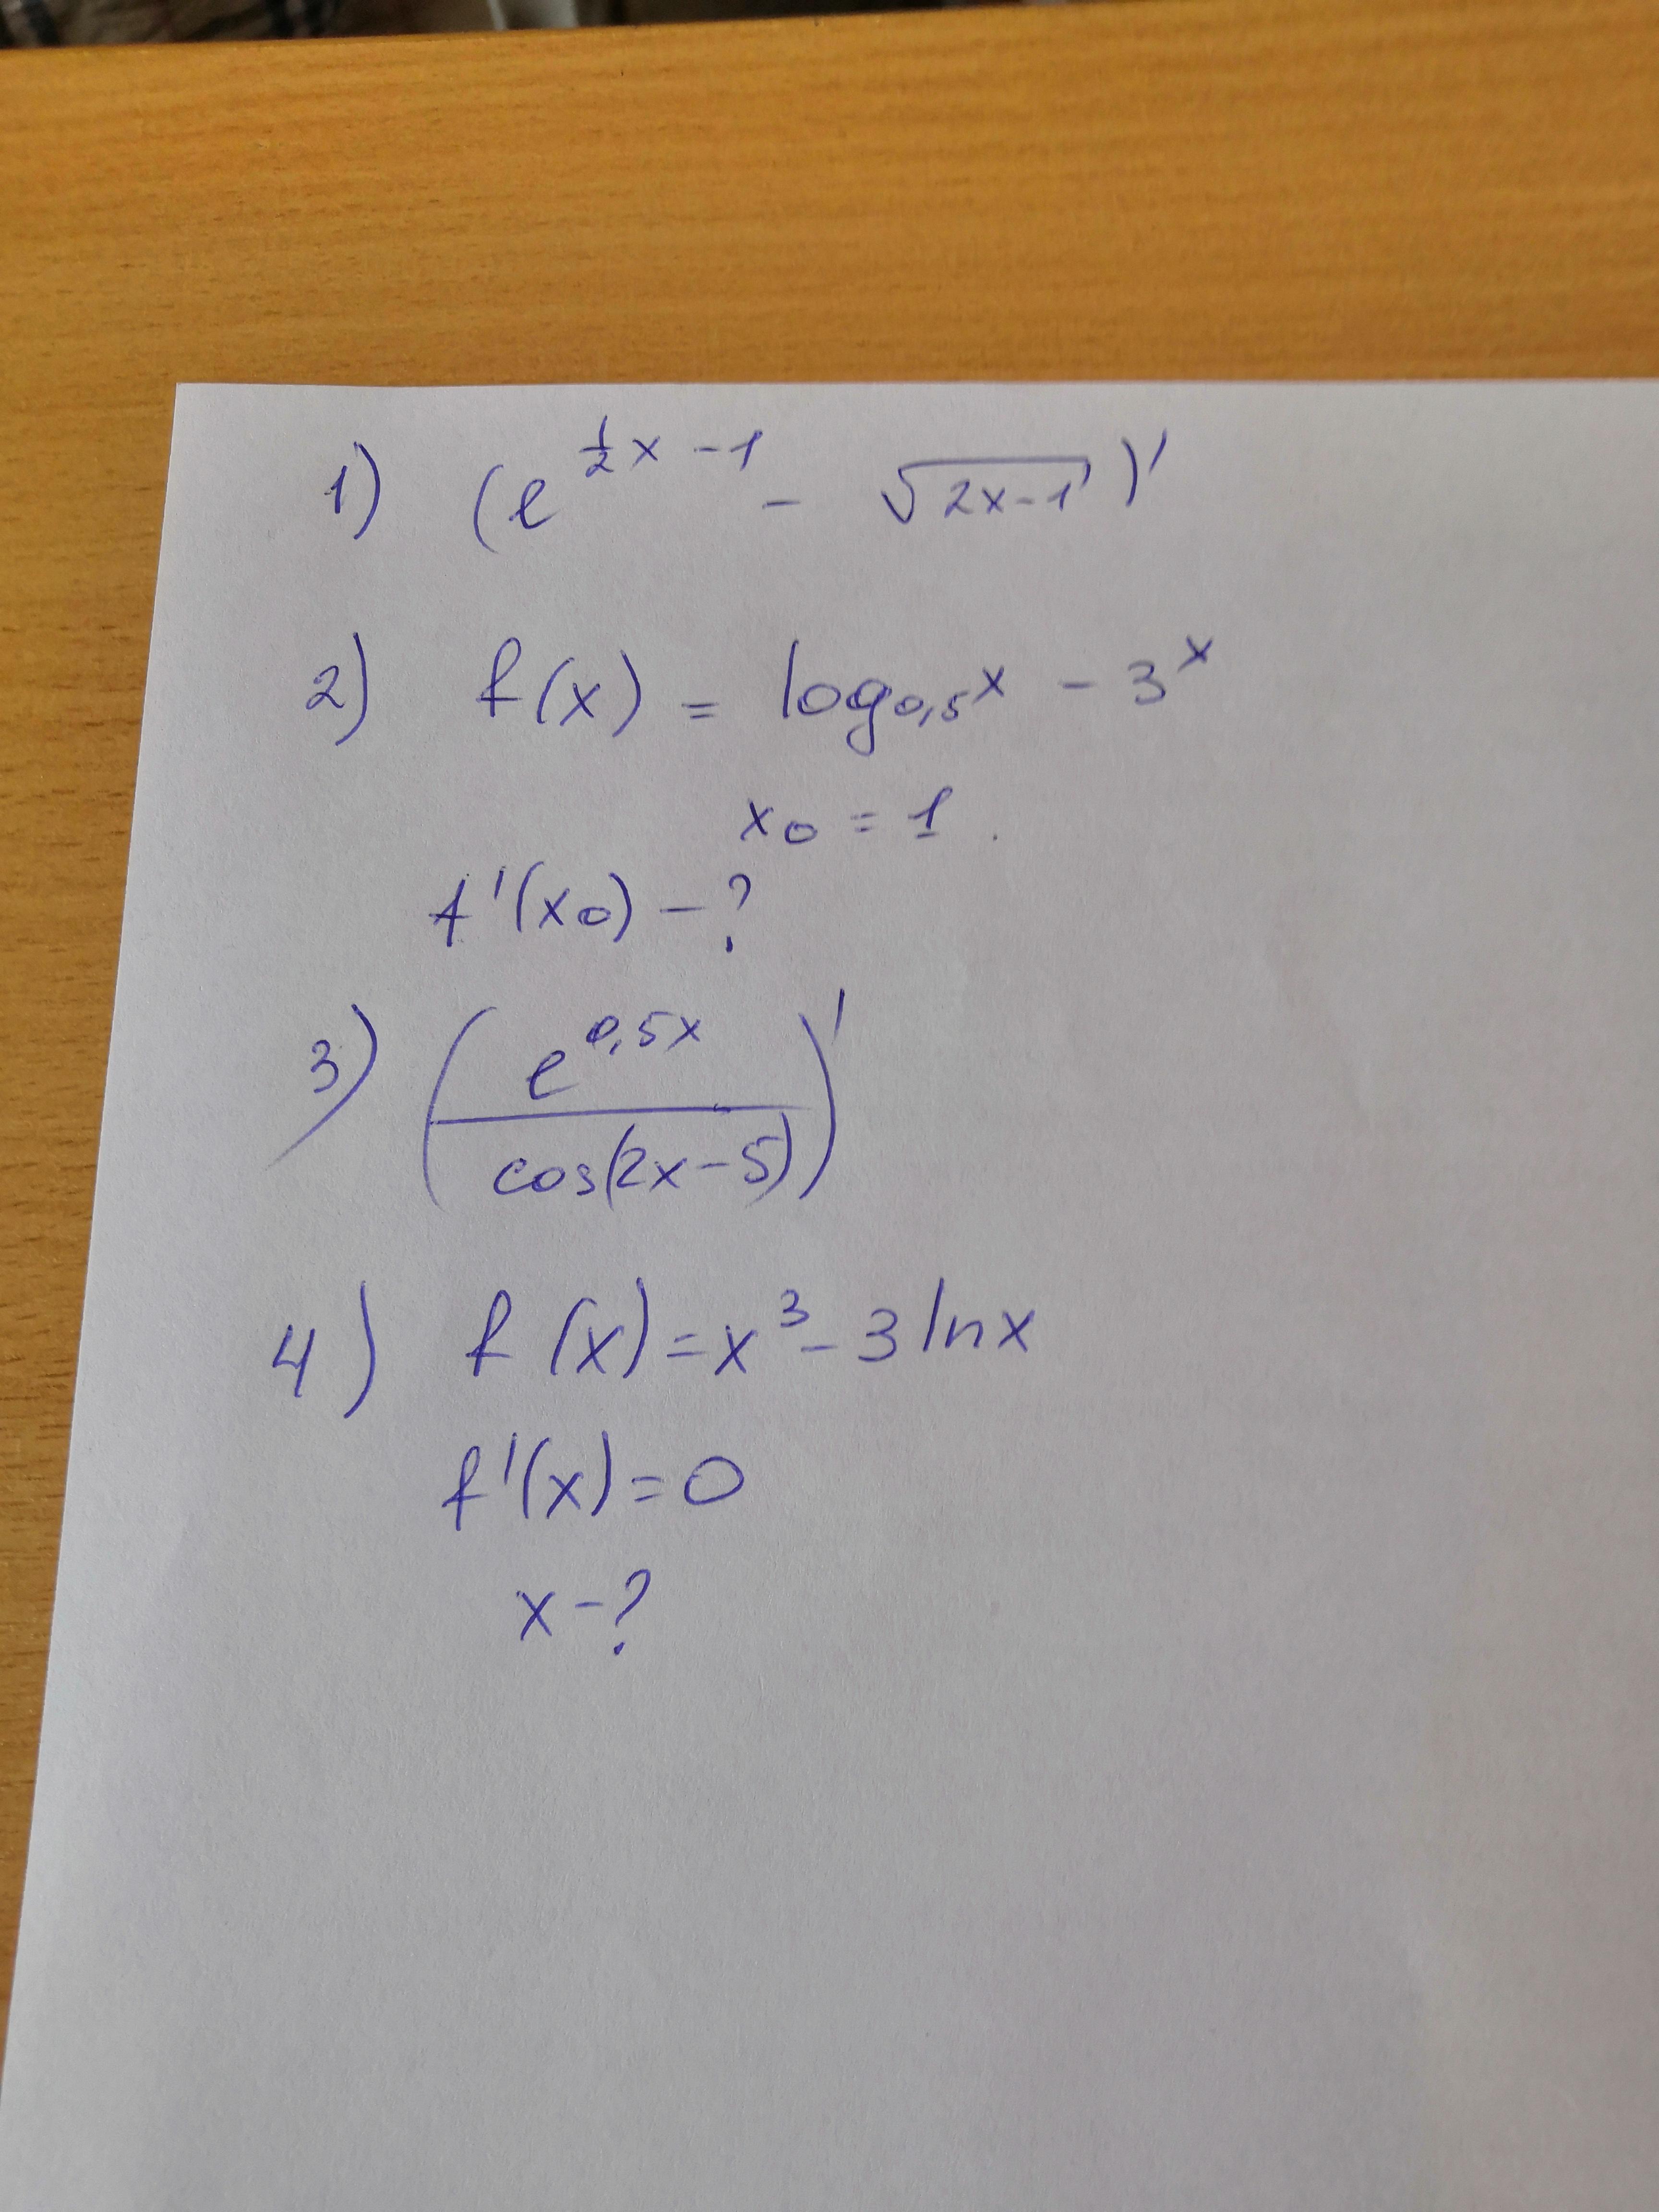 1) (e^{\frac{1}{2}x-1} - \sqrt{2x-1})'
2) f(x) = log_{0,5} x - 3^x
x_0 = 1.
f'(x_0) - ?
3) (\frac{e^{0,5x}}{cos(2x-5)})'
4) f(x) = x^3 - 3 ln x
f'(x) = 0
x - ?